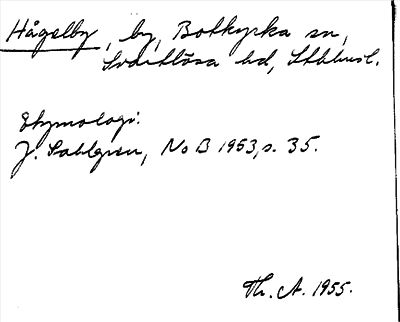 Hågelby, by, Botkyrka sn,
Svartlösa hd, Sthlmsl.
Etymologi:
J. Sahlgren, NoB 1953, s. 35.
Th. A. 1955.